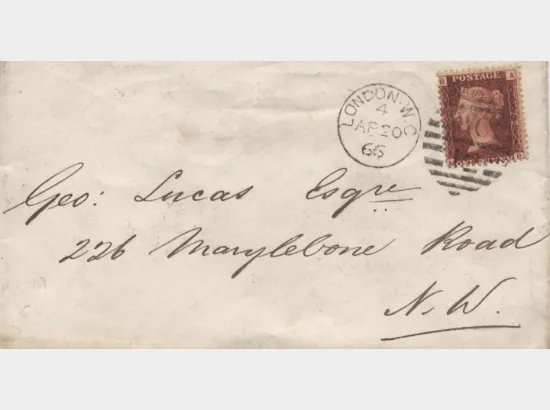 B POSTAGE A
LONDON·W.C
4
AP 20
66
Geo: Lucas Esqre
226 Marylebone Road
N.W.